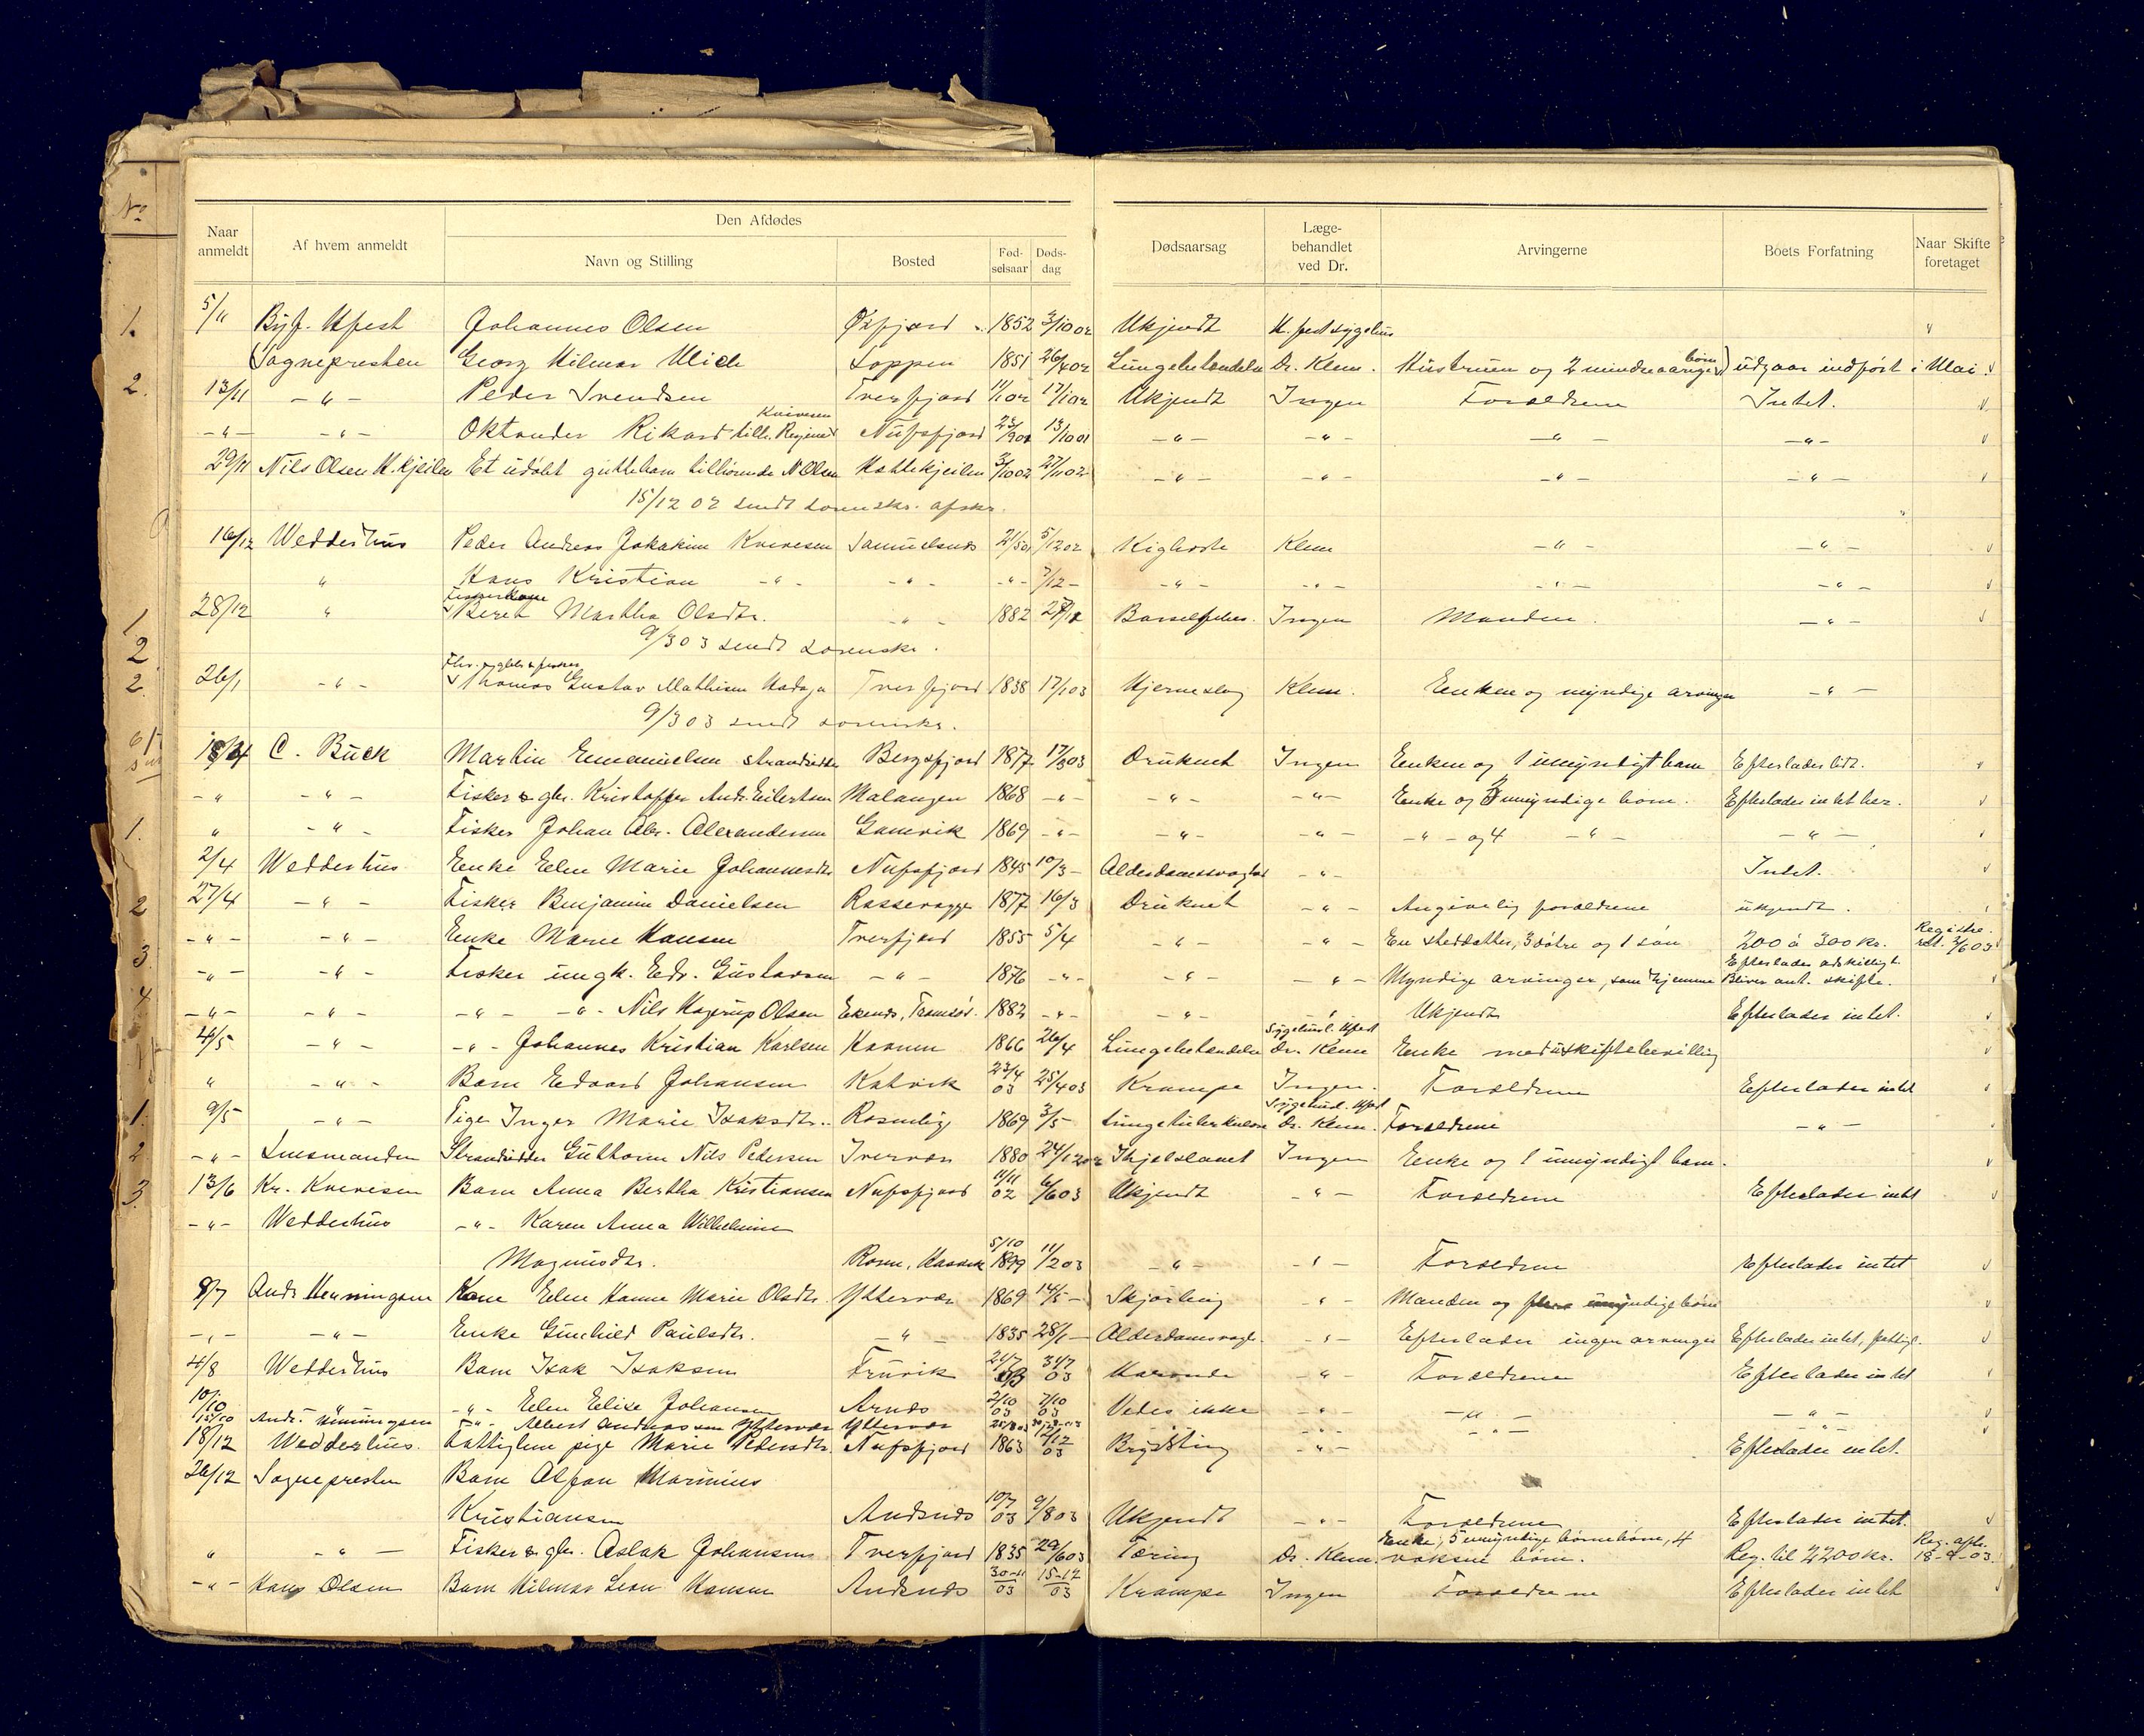 No
Naar anmeldt | Af hvem anmeldt | Den Afdødes | Navn og Stilling | Bosted | Fød-selsaar | Døds-dag | Dødsaarsag | Læge-behandlet ved Dr. | Arvingerne | Boets Forfatning | Naar Skifte foretaget
5/11 Byf. Hfest Johannes Olsen Øxfjord 1852 3/10 02 Ukjendt H.fest sygehus
Sognepresten Georg Hilmar Ulich Loppen 1851 26/4 02 Lungebetændelse Dr. Klem. Hustruen og 2 mindreaarige børn) udgaar indført i Mai.
13/11 -"- Peder Svendsen Tverfjord 11/1 02 17/1 02 Ukjendt Ingen Forældrene Intet.
-"- -"- Oktander Rikard tilh. Regine Kvivesen Nufsfjord 23/9 01 13/10 01 -"- -"- -"- -"-
29/11 Nils Olsen H.kjeilen Et udøbt guttebarn tilhørende N Olsen Hattekjeilen 3/10 02 27/11 02 -"- -"- -"- -"-
15/12 02 sendt sorenskr. afskr.
16/12 Wedderhus Peder Andreas Jokakim Kvivesen Samuelsnæs 21/5 01 5/12 02 Kighoste Klem -"- -"-
" Hans Kristian -"- -"- -"- 7/12 - -"- -"- -"- -"-
28/12 " Fiskerkone Beret Martha Olsdtr. -"- 1882 Barselfeber. Ingen Manden. -"-
9/3 03 sendt sorenskr.
26/1 -"- Thomas Gustav Mathisen Tverfjord 1838 17/1 03 Hjerneslag Klem. Enken og myndige arvinger -"-
9/3 03 sendt sorenskr.
C. Buck Martin Emanuelsen strandsidder Bergsfjord 1877 17/3 03 Druknet Ingen Enken og 1 umyndigt barn Efterlader lidt.
-"- -"- Fisker & gbr. Kristoffer Andr. Eilertsen Malangen 1868 -"- -"- -"- Enke og umyndige børn. Efterlader intet her.
" -"- Fisker Johan Alexandersen Gamvik 1869 -"- -"- -"- -"- og 4 -"- -"-
2/4 Wedderhus Enke Elen Marie Johannesdtr Nufsfjord 1845 10/3 - Alderdomssvaghed -"- Intet.
27/4 -"- Fisker Benjamin Danielsen Rassevagge 1877 16/3 Druknet -"- Angivelig forældrene ukjendt.
-"- -"- Enke Marie Hansen Tverfjord 1855 5/4 -"- -"- En steddatter, 3 døtre og 1 søn 200 à 300 kr. Registre. ret. 3/6 03
-"- -"- Fisker ungk. Edv. Gustavsen -"- 1876 -"- -"- -"- Myndige arvinger, som hjemme Efterlader adskilligt. Bliver ant. skifte.
-"- -"- -"- -"- Nils Hagerup Olsen Ekenes, Tromsøs. 1882 -"- -"- " Ukjendt Efterlader intet.
-"- -"- Johannes Kristian Karlsen Kavum 1866 26/4 Lungebetændelse Sygehusl. Hfest Dr. Klem Enke med uskiftebevilling
" -"- Barn Edvard Johansen Katvik 23/4 03 25/4 03 Krampe Ingen. Forældrene Efterlader intet
9/5 -"- Pige Inger Marie Isaksdtr. 1869 3/5 - Lungetuberkulose Sygehusl. Hfest Dr. Klem. Forældrene -"-
-"- Lensmanden Strandsidder Guttorm Nils Pedersen Ivervær 1880 24/12 02 Ihjelslaaet Ingen Enke og 1 umyndigt barn.
13/6 Kr. Kvivesen Barn Anna Bertha Kristiansen Nufsfjord 11/11 02 6/6 03 Ukjendt -"- Forældrene Efterlader intet
-"- Wedderhus -"- Karen Anna Wilhelmine
Magnusdtr. 5/10 1899 11/2 03 -"- -"- Forældrene Efterlader intet
8/7 Andr. Henningsen Kone Elen Hanna Marie Olsdtr. Yttervær 1869 14/5 - -"- Manden og umyndige børn
-"- -"- Enke Gunhild Paulsdtr. -"- 1835 28/1 - Alderdomssvagh. -"- Efterlader ingen arvinger Efterlader intet, fattigl.
4/8 Wedderhus Barn Isak Isaksen Fruvik 21/7 03 31/7 03 -"- Forældrene Efterlader intet
10/10 " -"- Elen Elise Johansen Arnæs 2/10 03 7/10 03 Vedes ikke -"- -"- -"-
15/10 Andr. Henningsen -"- Albert Andreassen Yttervær Yttervær -"- -"- -"-
18/12 Wedderhus. Fattiglem pige Marie Pedersdtr. Nufsfjord 1863 03 -"- Efterlader intet.
26/12 Sognepresten Barn Alfon Marinius
Kristiansen Andsnæs 10/7 03 9/8 03 Ukjendt -"- Forældrene Efterlader intet.
" -"- Fisker & gbr. Aslak Johansen Tverfjord 1835 29/6 03 Tæring Dr. Klem. Enke, 5 umyndige børnebørn, 4 voksne børn. Reg. til 2200 kr. Reg. afh. 18-9-03.
-"- Hans Olsen Barn Hilmar Leon Hansen Andsnæs 30-11 03 15-12 03 Krampe Ingen Forældrene Efterlader intet